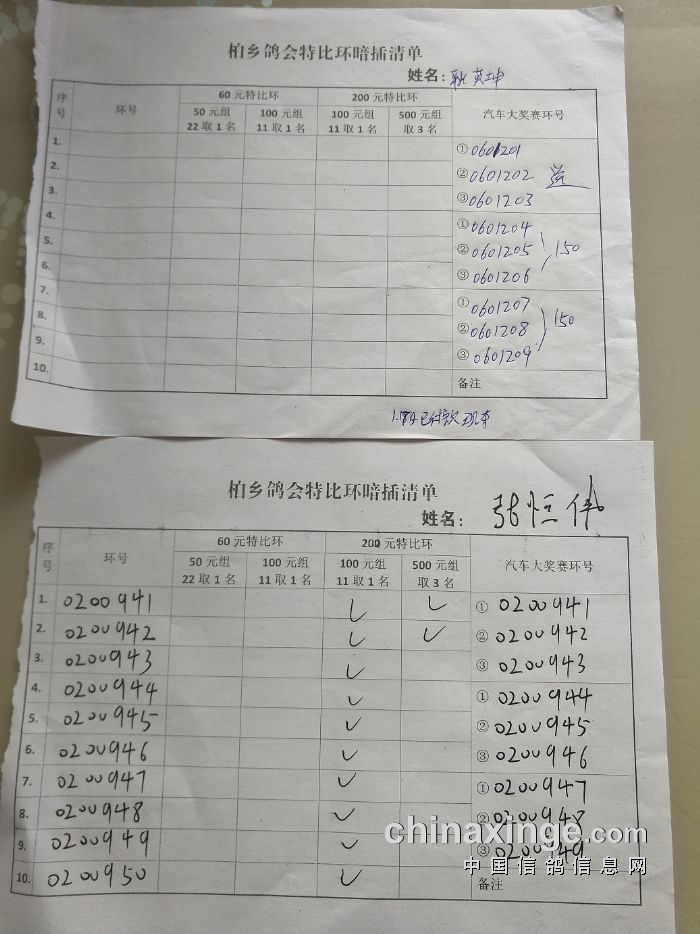 柏乡鸽会特比环暗插清单
姓名：耿英坤
序号 环号 60元特比环 200元特比环 汽车大奖赛环号
50元组 22取1名 100元组 11取1名 100元组 11取1名 500元组 取3名
1. ①0601201
2. ②0601202
3. ③0601203
4. ①0601204
5. ②0601205 150
6. ③0601206
7. ①0601207
8. ②0601208 150
9. ③0601209
10. 备注
已付款
柏乡鸽会特比环暗插清单
姓名：张恒伟
序号 环号 60元特比环 200元特比环 汽车大奖赛环号
50元组 22取1名 100元组 11取1名 100元组 11取1名 500元组 取3名
1. 0200941 ✓ ✓ ①0200941
2. 0200942 ✓ ✓ ②0200942
3. 0200943 ✓ ③0200943
4. 0200944 ✓ ①0200944
5. 0200945 ✓ ②0200945
6. 0200946 ✓ ③0200946
7. 0200947 ✓ ①0200947
8. 0200948 ✓ ②0200948
9. 0200949 ✓ ③0200949
10. 0200950 ✓ 备注
chinaxinge.com
中国信鸽信息网